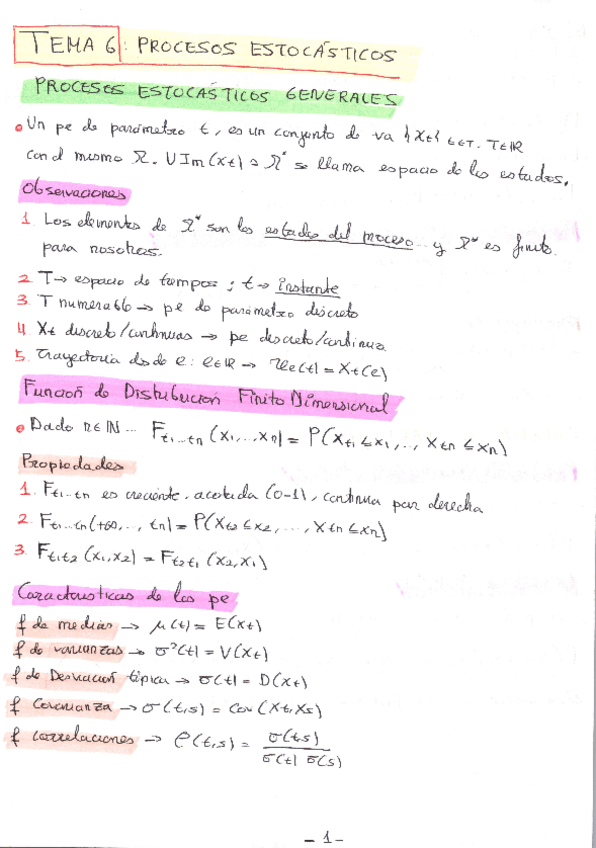 TEMA 6: PROCESOS ESTOCÁSTICOS
PROCESOS ESTOCÁSTICOS GENERALES
• Un pe de parámetro t, es un conjunto de va {Xt} t∈T. T∈ℝ
con el mismo Ω. U Im(Xt) = Ω* se llama espacio de los estados.
Observaciones
1. Los elementos de Ω* son los estados del proceso... y Ω* es finito
para nosotros.
2. T → espacio de tiempos ; t → instante
3. T numerable → pe de parámetro discreto
4. Xt discreto/continuas → pe discreto/continuo
5. Trayectoria desde e: e∈Ω → xe(t) = Xt(e)
Función de Distribución Finito Dimensional
• Dado n∈ℕ... Ft1...tn (x1,..., xn) = P(Xt1 ≤ x1,..., Xtn ≤ xn)
Propiedades
1. Ft1...tn es creciente, acotada (0-1), continua por derecha
2. Ft1...tn(+∞,..., tn) = P(Xt2 ≤ x2, ..., Xtn ≤ xn)
3. Ft1t2 (x1,x2) = Ft2t1 (x2,x1)
Características de los pe
f de medias → μ(t) = E(Xt)
f de varianzas → σ²(t) = V(Xt)
f de Desviación típica → σ(t) = D(Xt)
f Covarianza → σ(t,s) = Cov(Xt,Xs)
f correlaciones → ρ(t,s) = σ(t,s) / σ(t) σ(s)
- 1 -